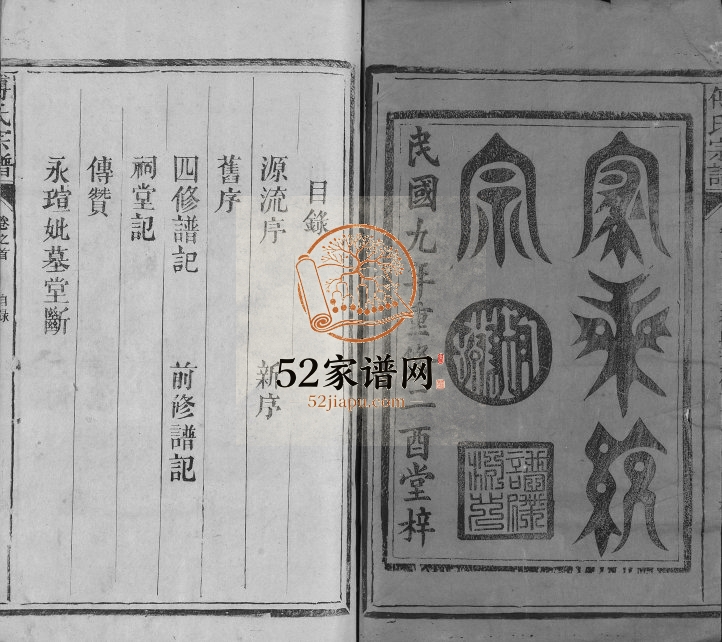 傅氏宗譜
家乘統
宗
民國九年重修二酉堂梓
目錄
源流序 新序
舊序
四修譜記 前修譜記
祠堂記
傳贊
永瑄妣墓堂斷
傅氏宗譜 卷之首 目錄
52家谱网
52jiapu.com